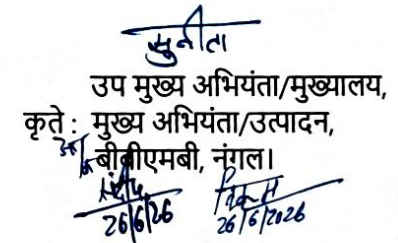 सुनीता
उप मुख्य अभियंता/मुख्यालय,
कृते : मुख्य अभियंता/उत्पादन,
बीबीएमबी, नंगल।
26/6/26 26/6/2026